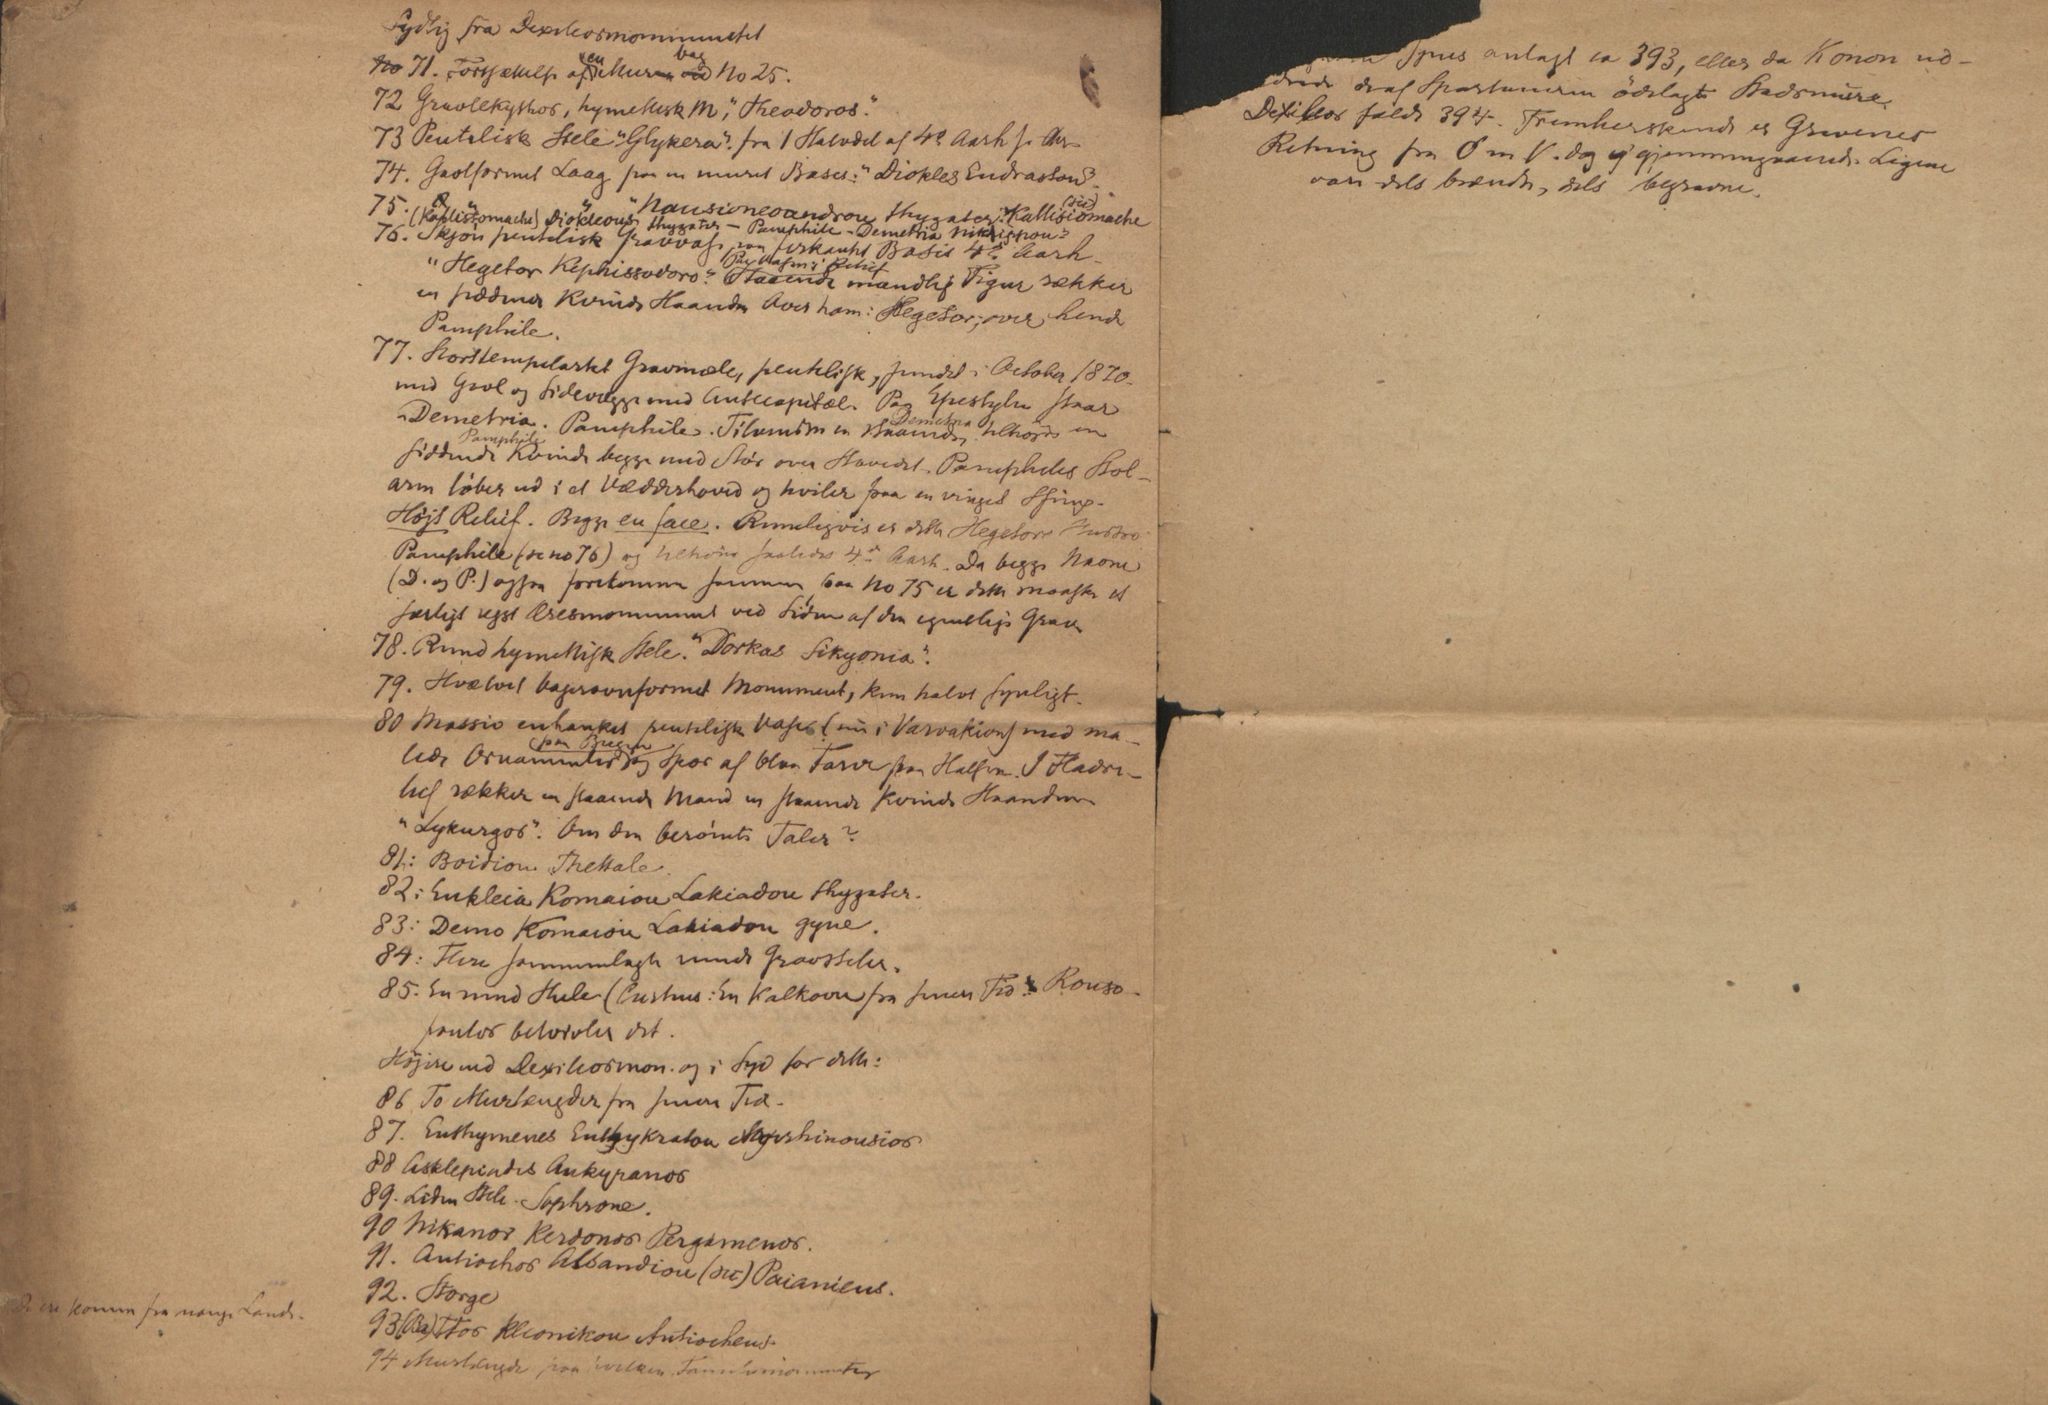 Sydlig fra Dexileosmonumentet
No 71. Fortsættelse af en Mur bag No 25.
72 Gravlekythos, hymettisk M, "Theodoros".
73 Pentelisk Stele "Glykera". fra 1 Halvdel af 4e Aarh f. Chr
74. Gavlformet Laag paa en muret Basis: "Diokles Eudrastou?
75. "Nausineoandrou thygater. Kallistomache (sic)
(Kallistomache) Diokleous thygater – Pamphile – Demetria Nikippou?
76. Skjön pentelisk Gravvase paa firkantet Basis 4e Aarh –
"Hegetor Kephissodoro". Paa Vasen i Relief Staaende mandlig Figur rækker
en siddende Kvinde Haanden Over ham: Hegetor; over hende
Pamphile.
77. Stort tempelartet Gravmæle, pentelisk, fundet i October 1870
med Gavl og Sidevægge med Antecapitæl. Paa Epistylen staar
"Demetria. Pamphile. Tilvenstre en staaende Demetria, tilhöjre en
siddende Pamphile Kvinde begge med Slör over Hovedet. Pamphiles Stol–
arm löber ud i et Vædderhoved og hviler paa en vinget Sfinx.
Höjt Relief. Begge en face. Rimeligvis er dette Hegetors Hustru
Pamphile (se no 76) og tilhörer saaledes 4e Aarh. Da begge Navne
(D. og P.) ogsaa forekomme sammen paa No 75 er dette maaske et
særligt rejst Æresmonument ved Siden af den egentlige Grav
78. Rund hymettisk Stele. "Dorkas Sikyonia".
79. Hvælvet bagerovnformet Monument, kun halvt synligt.
80 Massiv enhanket pentelisk Vase (nu i Varvakion) med ma–
lede Ornamenter paa Bugen og Spor af blaa Farve paa Halsen. I Fladre–
lief rækker en staaende Mand en staaende Kvinde Haanden
"Lykurgos". Om den berömte Taler?
81: Boidion Thettale.
82: Eukleia Komaiou Lakiadou thygater.
83: Demo Komaiou Lakiadou gyne.
84: Flere sammenlagte runde Gravsteler.
85. En rund Stele (Curtius: En Kalkovn fra senere Tid; Rouso–
poulos betvivler det.
Höjere end Dexileosmon. og i Syd for dette:
86 To Murlængder fra senere Tid.
87. Euthymenes Euthykratou Myrrhinousios
88 Asklepiades Ankyranos
89. Liden Stele. Sophrone.
90 Nikanor Kerdonos Pergamenos.
91. Antiochos Alsandiou (sic) Paianieus.
92. Storge
93 (Ba)ttos Kleonikou Antiocheus.
94 Murlængde paa hvilken Familiemonumenter
ere komne fra mange Lande.
synes anlagt ca 393, eller da Konon ud–
de af Spartanerne ödelagte Stadsmure.
Dexileos faldt 394. Fremherskende er Gravenes
Retning fra Ö m V. dog ej gjennemgaaende. Ligene
vare dels brændte, dels begravne.